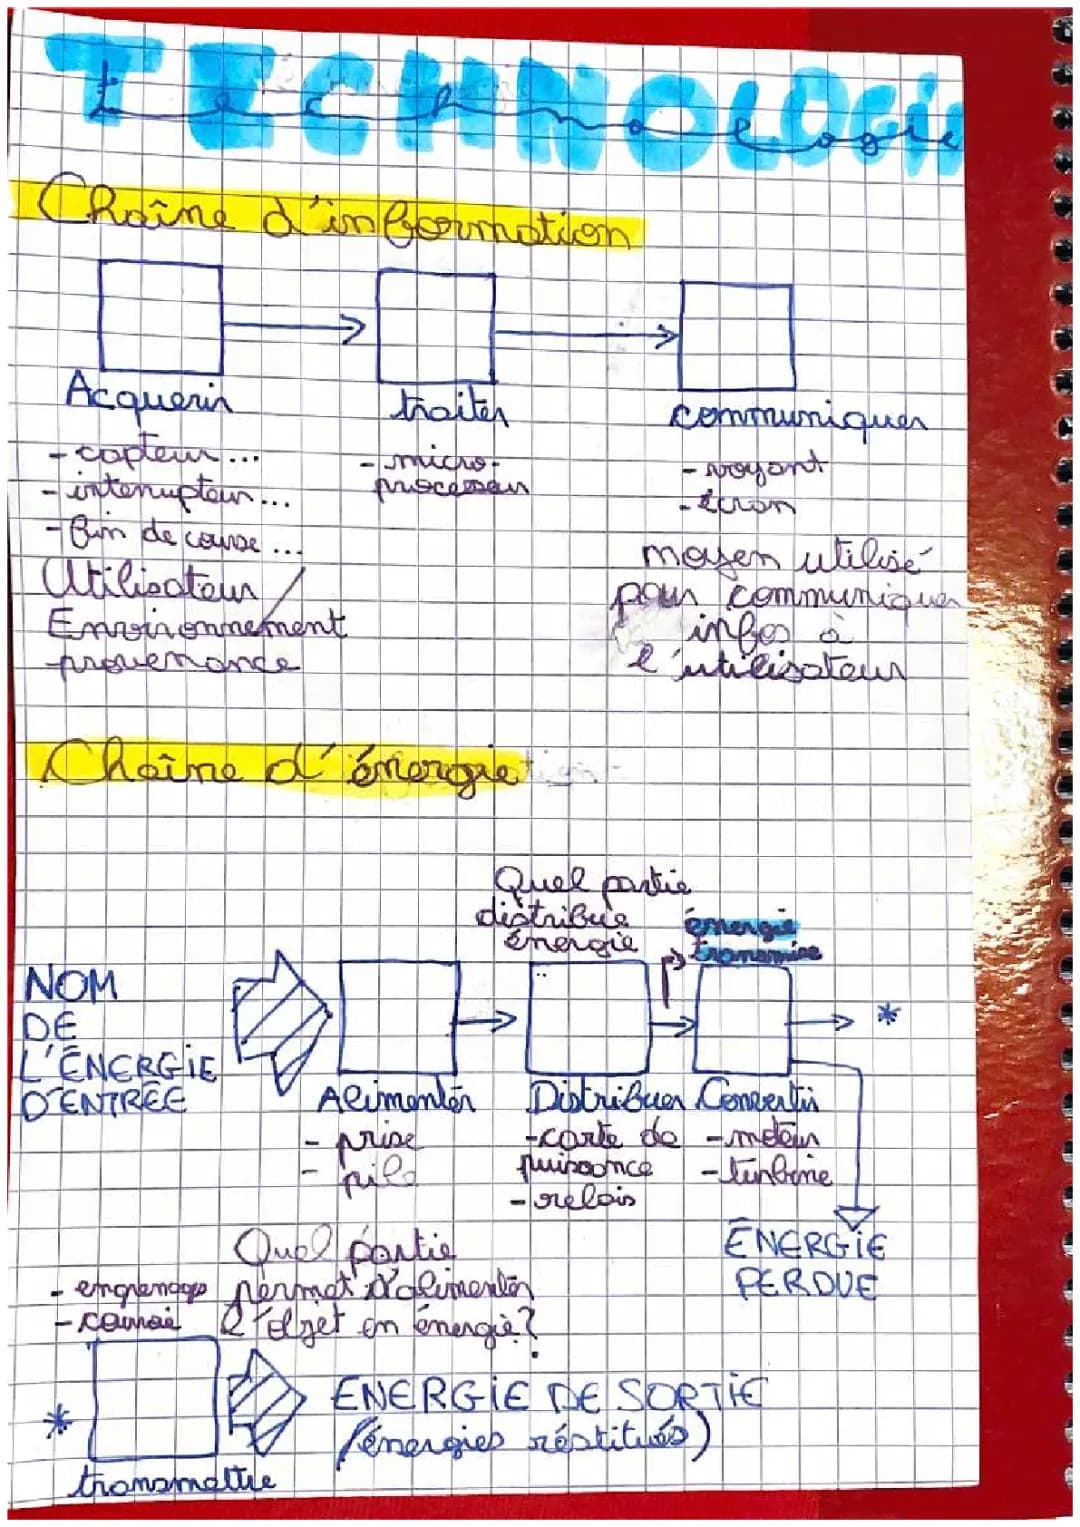 TECHNOLOGie
technologie
Chaîne d'information
Acquerir
traiter
communiquer
- capteur...
- interrupteur...
- fin de course...
Utilisateur /
Environnement
provenance
- micro-
processeur
- voyant
- écran
moyen utilisé
pour communiquer
infos à
l'utilisateur
Chaîne d'énergie
Quel partie
distribue
énergie
énergie
transmise
NOM
DE
L'ÉNERGiE
D'ENTRÉE
*
Alimenter
Distribuer
Convertir
- prise
- pile
- carte de
puissance
- relais
- moteur
- turbine
ÉNERGiE
PERDUE
Quel partie
permet d'alimenter
l'objet en énergie?
- engrenage
- courroie
*
transmettre
ENERGiE DE SORTiE
(énergies réstitués)